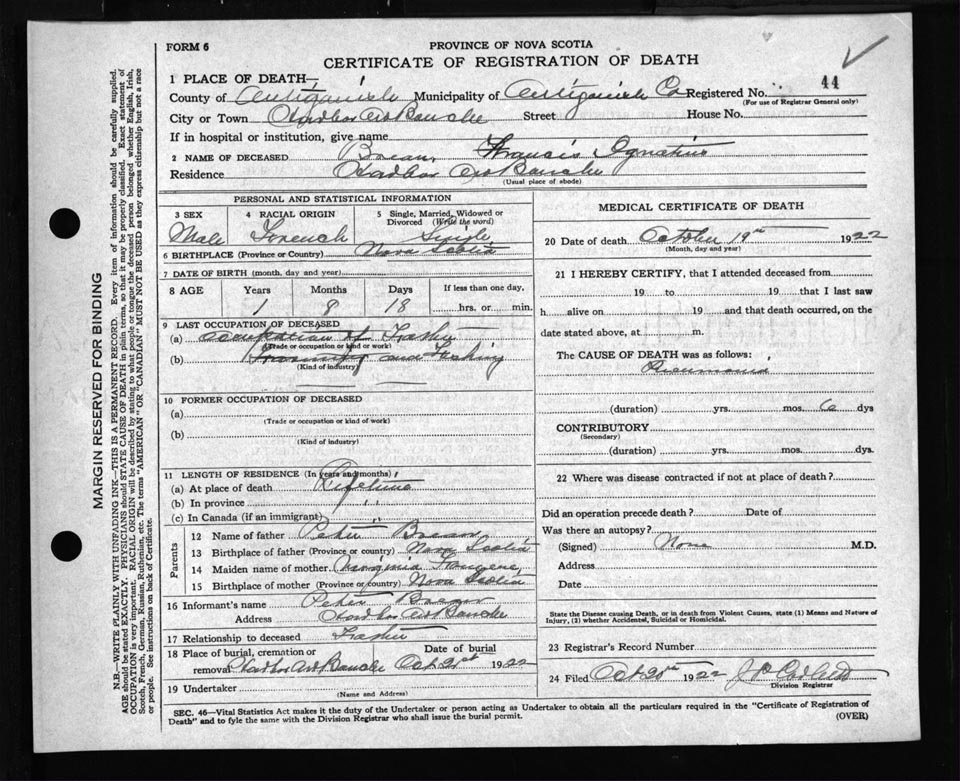 FORM 6
PROVINCE OF NOVA SCOTIA
CERTIFICATE OF REGISTRATION OF DEATH
1 PLACE OF DEATH—
County of Antigonish Municipality of Antigonish Co Registered No. 44
(For use of Registrar General only)
City or Town Harbor Au Bouche Street House No.
If in hospital or institution, give name
2 NAME OF DECEASED Francis Ignatius
Residence Harbor Au Bouche
(Usual place of abode)
PERSONAL AND STATISTICAL INFORMATION
3 SEX 4 RACIAL ORIGIN 5 Single, Married, Widowed or Divorced (Write the word)
Male French Single
6 BIRTHPLACE (Province or Country) Nova Scotia
7 DATE OF BIRTH (month, day and year)
8 AGE Years Months Days If less than one day,
1 8 18 hrs. or min.
9 LAST OCCUPATION OF DECEASED
(a) occupation of Father
(Trade or occupation or kind of work)
(b) Farming and Fishing
(Kind of industry)
10 FORMER OCCUPATION OF DECEASED
(a)
(Trade or occupation or kind of work)
(b)
(Kind of industry)
11 LENGTH OF RESIDENCE (In years and months)
(a) At place of death Lifetime
(b) In province "
(c) In Canada (if an immigrant) "
Parents
12 Name of father Peter
13 Birthplace of father (Province or country) Nova Scotia
14 Maiden name of mother
15 Birthplace of mother (Province or country) Nova Scotia
16 Informant's name Peter
Address Harbor Au Bouche
17 Relationship to deceased Father
18 Place of burial, cremation or removal Harbor Au Bouche Date of burial Oct 20th 1922
19 Undertaker
(Name and Address)
MEDICAL CERTIFICATE OF DEATH
20 Date of death October 19th 1922
(Month, day and year)
21 I HEREBY CERTIFY, that I attended deceased from
19 to 19 that I last saw
h alive on 19 and that death occurred, on the
date stated above, at m.
The CAUSE OF DEATH was as follows:
Pneumonia
(duration) yrs. mos. 6 dys
CONTRIBUTORY
(Secondary)
(duration) yrs. mos. dys.
22 Where was disease contracted if not at place of death?
Did an operation precede death? Date of
Was there an autopsy?
(Signed) None M.D.
Address
Date
State the Disease causing Death, or in death from Violent Causes, state (1) Means and Nature of
Injury, (2) whether Accidental, Suicidal or Homicidal.
23 Registrar's Record Number
24 Filed Oct 20th 1922
Division Registrar
SEC. 46—Vital Statistics Act makes it the duty of the Undertaker or person acting as Undertaker to obtain all the particulars required in the "Certificate of Registration of
Death" and to fyle the same with the Division Registrar who shall issue the burial permit.
(OVER)
MARGIN RESERVED FOR BINDING
N.B.—WRITE PLAINLY WITH UNFADING INK—THIS IS A PERMANENT RECORD. Every item of information should be carefully supplied.
AGE should be stated EXACTLY. PHYSICIANS should STATE CAUSE OF DEATH in plain terms, so that it may be properly classified. Exact statement of
OCCUPATION is very important. RACIAL ORIGIN will be described by stating to what people or tongue the deceased person belonged whether English, Irish,
Scotch, French, German, Russian, Ruthenian, etc. The terms "AMERICAN" or "CANADIAN" MUST NOT BE USED as they express citizenship but not a race
or people. See instructions on back of Certificate.